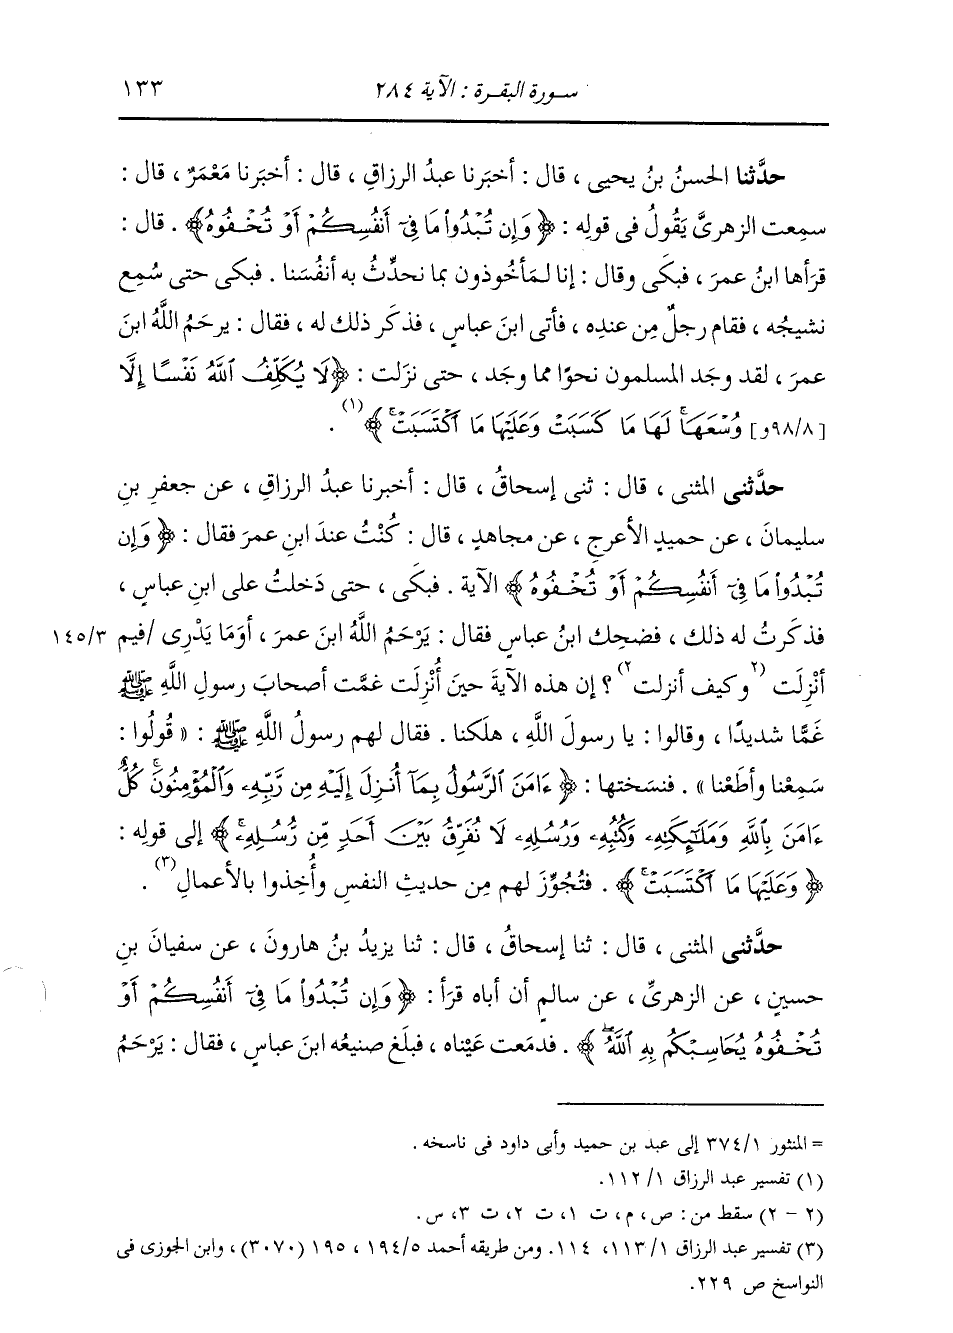 سورة البقرة : الآية ٢٨٤ ١٣٣
حدَّثنا الحسنُ بنُ يحيى ، قال : أخبَرنا عبدُ الرزاقِ ، قال : أخبَرنا مَعْمَرٌ ، قال :
سمِعت الزهرىَّ يَقُولُ فى قولِه : ﴿ وَإِن تُبْدُوا۟ مَا فِىٓ أَنفُسِكُمْ أَوْ تُخْفُوهُ ﴾ . قال :
قرَأها ابنُ عمرَ ، فبكَى وقال : إنا لمأخُوذون بما نحدِّثُ به أنفُسَنا . فبكى حتى سُمِع
نشيجُه ، فقام رجلٌ مِن عندِه ، فأتى ابنَ عباسٍ ، فذكَر ذلك له ، فقال : يرحَمُ اللَّهُ ابنَ
عمرَ ، لقد وجَد المسلمون نحوًا مما وجَد ، حتى نزَلت : ﴿ لَا يُكَلِّفُ ٱللَّهُ نَفْسًا إِلَّا
[٩٨/٨و] وُسْعَهَا ۚ لَهَا مَا كَسَبَتْ وَعَلَيْهَا مَا ٱكْتَسَبَتْ ۚ ﴾ (١) .
حدَّثنى المثنى ، قال : ثنى إسحاقُ ، قال : أخبرنا عبدُ الرزاقِ ، عن جعفرِ بنِ
سليمانَ ، عن حميدٍ الأعرجِ ، عن مجاهدٍ ، قال : كُنْتُ عندَ ابنِ عمرَ فقال : ﴿ وَإِن
تُبْدُوا۟ مَا فِىٓ أَنفُسِكُمْ أَوْ تُخْفُوهُ ﴾ الآية . فبكَى ، حتى دَخلتُ على ابنِ عباسٍ ،
فذكَرتُ له ذلك ، فضحِك ابنُ عباسٍ فقال : يَرْحَمُ اللَّهُ ابنَ عمرَ ، أوَمَا يَدْرِى /فيم ١٤٥/٣
أنْزِلَت (٢) وكيف أنزلت (٢) ؟ إن هذه الآيةَ حينَ أُنْزِلَت غمَّت أصحابَ رسولِ اللَّهِ ﷺ
غَمًّا شديدًا ، وقالوا : يا رسولَ اللَّهِ ، هلَكنا . فقال لهم رسولُ اللَّهِ ﷺ : « قُولُوا :
سَمِعْنا وأطَعْنا » . فنسَختها : ﴿ ءَامَنَ ٱلرَّسُولُ بِمَآ أُنزِلَ إِلَيْهِ مِن رَّبِّهِۦ وَٱلْمُؤْمِنُونَ ۚ كُلٌّ
ءَامَنَ بِٱللَّهِ وَمَلَـٰٓئِكَتِهِۦ وَكُتُبِهِۦ وَرُسُلِهِۦ لَا نُفَرِّقُ بَيْنَ أَحَدٍ مِّن رُّسُلِهِۦ ۚ ﴾ إلى قولِه :
﴿ وَعَلَيْهَا مَا ٱكْتَسَبَتْ ۗ ﴾ . فتُجُوِّزَ لهم مِن حديثِ النفسِ وأُخِذوا بالأعمالِ (٣) .
حدَّثنى المثنى ، قال : ثنا إسحاقُ ، قال : ثنا يزيدُ بنُ هارونَ ، عن سفيانَ بنِ
حسينٍ ، عن الزهرىِّ ، عن سالمٍ أن أباه قرَأ : ﴿ وَإِن تُبْدُوا۟ مَا فِىٓ أَنفُسِكُمْ أَوْ
تُخْفُوهُ يُحَاسِبْكُم بِهِ ٱللَّهُ ۖ ﴾ . فدمَعت عَيْناه ، فبلَغ صنيعُه ابنَ عباسٍ ، فقال : يَرْحَمُ
= المنثور ٣٧٤/١ إلى عبد بن حميد وأبى داود فى ناسخه .
(١) تفسير عبد الرزاق ١/ ١١٢.
(٢ - ٢) سقط من : ص ، م ، ت ١، ت ٢، ت ٣، س .
(٣) تفسير عبد الرزاق ١/ ١١٣، ١١٤. ومن طريقه أحمد ١٩٤/٥ ، ١٩٥ (٣٠٧٠) ، وابن الجوزى فى
النواسخ ص ٢٢٩.